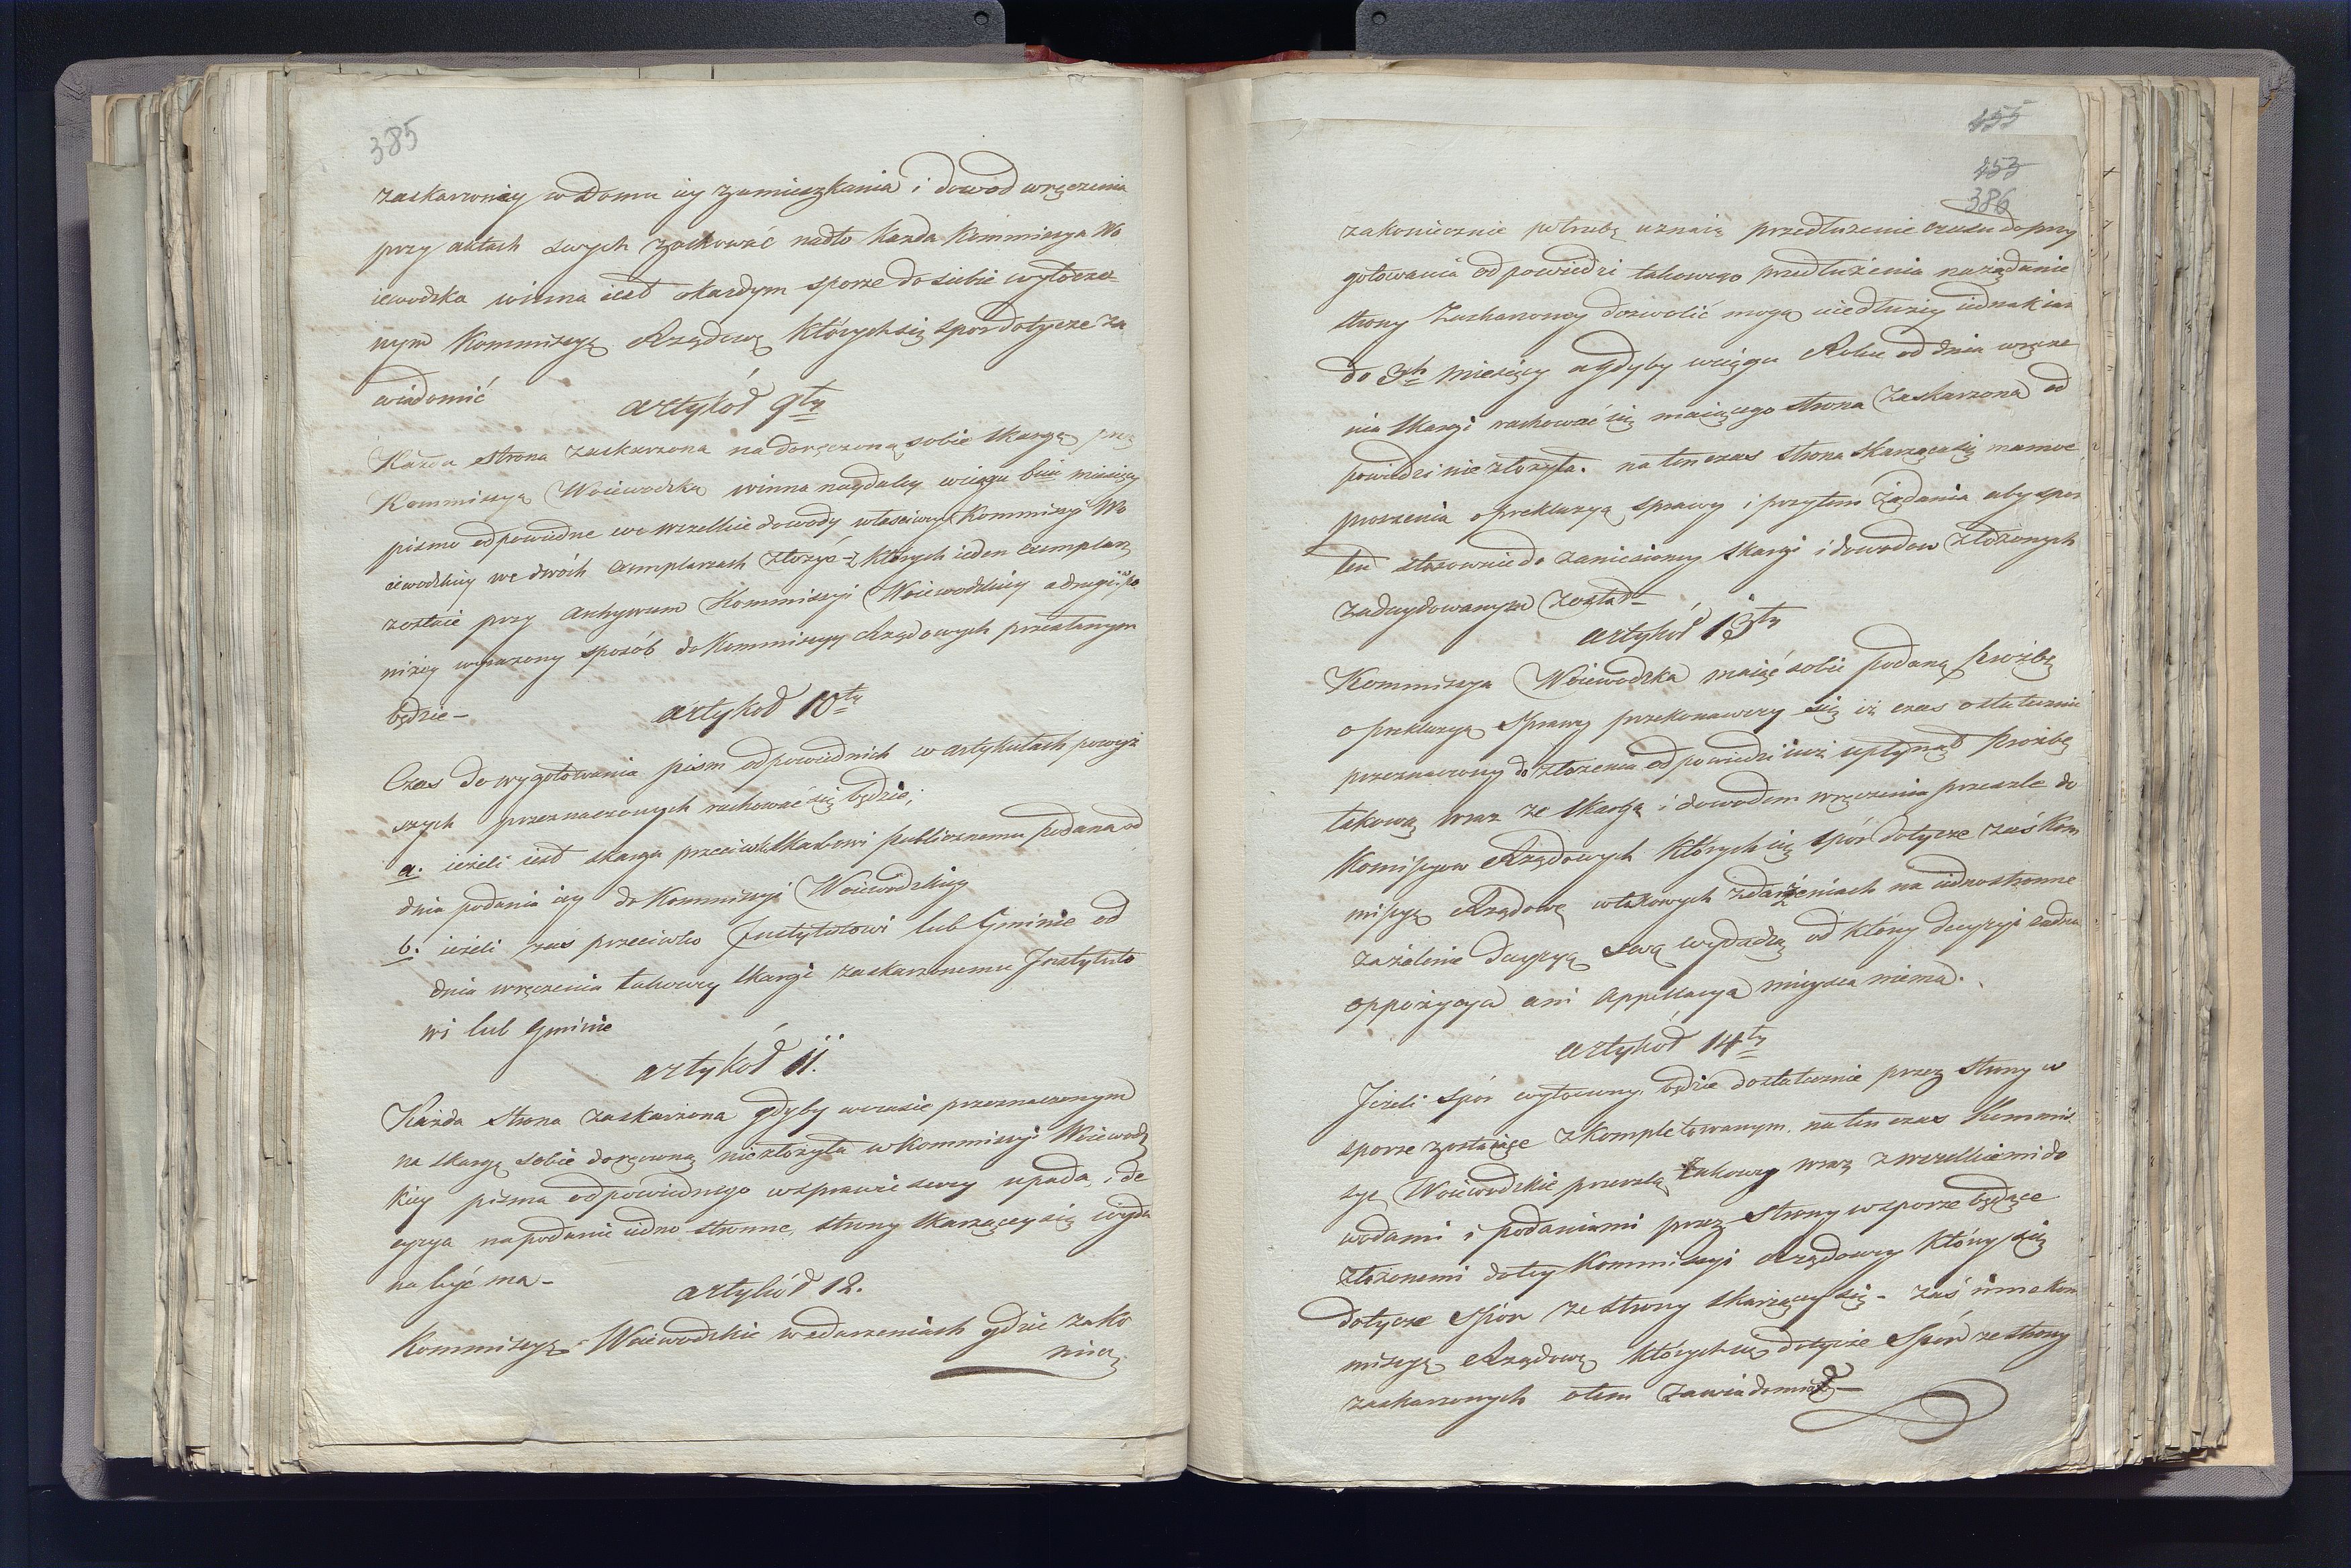 385
zaskarzoney w Domu iey zamieszkania i dowod wręczenia
przy aktach swych zachować nadto każda Kommissya Wo
iewodzka winna iest okazdym sporze do siebie wytoczo=
nym Kommissyę Rządową których się spor dotycze za
wiadomić
artykół 9ty
Każda strona zaskarzona na doręczoną sobie skargę przez
Kommissyą Woiewodzką winna naydaley wciągu 6ciu miesięcy
pismo odpowiedne we wszelkie dowody właściwey Kommissyi Wo
iewodzkiey we dwóch exemplarzach złożyć – z których ieden exemplarz
zostaie przy Archywum Kommissyi Woiewodzkiey a drugi w po
niżey wyrazony sposób do Kommissyy Rządowych przesłanym
będzie –
artykoł 10ty
Czas do wygotowania pism odpowiednich w artykułach powyż
szych przeznaczonych rachować się będzie;
a. ieżeli iest skarga przeciwko Skarbowi publicznemu podana od
dnia podania iey do Kommissyi Woiewodzkiey
b. ieżeli zaś przeciwko Instytutowi lub Gminie od
dnia wręczenia takowey skargi zaskarzonemu Instytuto
wi lub Gminie
artykół 11.
Każda strona zaskarżona gdyby wczasie przeznaczonym
na skargę sobie doręczoną niezłożyła w Kommissyi Woiewodz
kiey pisma odpowiednego wsprawie swey upada, i de
cyzya na podanie iedno stronne, strony skarzącey się wyda
na być ma –
artykół 12.
Kommissye Woiewodzkie wzdarzeniach gdzie zako
niecz
455
453
386
zakoniecznie potrzebę uznaią przedłużenie czasu do przy
gotowania odpowiedzi takowego przedłużenia na żądanie
strony Zaskarzoney dozwolić mogą niedłużey iednak iak
do 3ch Miesięcy agdyby wciągu Roku od dnia wręcze
nia skargi rachować się maiącego strona Zaskarzona od
powiedzi nie złożyła. na ten czas strona Skarząca się ma moc
proszenia o prekluzyą sprawy i przytem żądania aby spor
ten stosownie do zaniesioney skargi i dowodow złożonych
zadecydowanym został –
artykół 13ty
Kommissya Woiewodzka maiąc sobie podaną prożbę
o prekluzyą Sprawy przekonawszy się iż czas ostatecznie
przeznaczony do złożenia odpowiedzi iuż upłynął prożbę
takową wraz ze skargą i dowodem wręczenia przeszle do
Komissyow Rządowych których się spór dotycze zaś Kom
missye Rządowe wtakowych zdarzeniach na iednostronne
zażalenie decyzyą swą wydadzą od którey decyzyi żadna
oppozycya ani appellacya mieysca niema.
artykół 14ty
Jeżeli spór wytoczony, będzie dostatecznie przez strony w
sporze zostaiące zkompletowanym, na ten czas Kommis
sye Woiewodzkie przeszlą takowy wraz z wszelkiemi do
wodami i podaniami przez strony w sporze będące
złożonemi do tey Kommissyi Rządowey którey się
dotycze Spor ze strony skarzącey się – zaś inne Kom
missye Rządowe których się dotycze Spór ze strony
zaskarzonych otem zawiadomić –